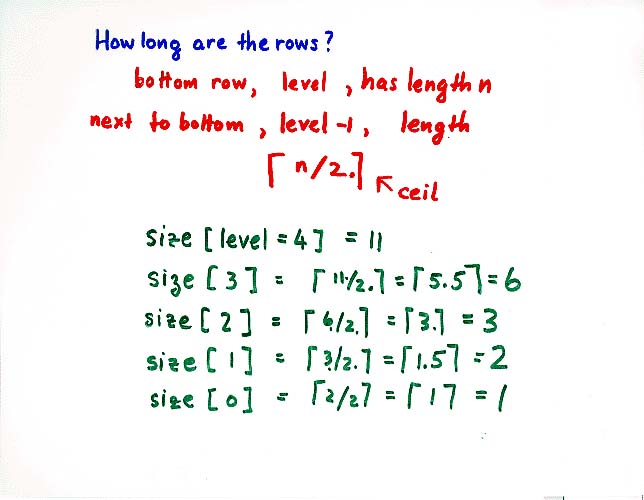 How long are the rows?
bottom row, level , has length n
next to bottom , level -1, length
⌈ n/2. ⌉ ↖ ceil
size [level = 4] = 11
size [3] = ⌈11/2.⌉ = ⌈5.5⌉ = 6
size [2] = ⌈6/2.⌉ = ⌈3.⌉ = 3
size [1] = ⌈3/2.⌉ = ⌈1.5⌉ = 2
size [0] = ⌈2/2⌉ = ⌈1⌉ = 1